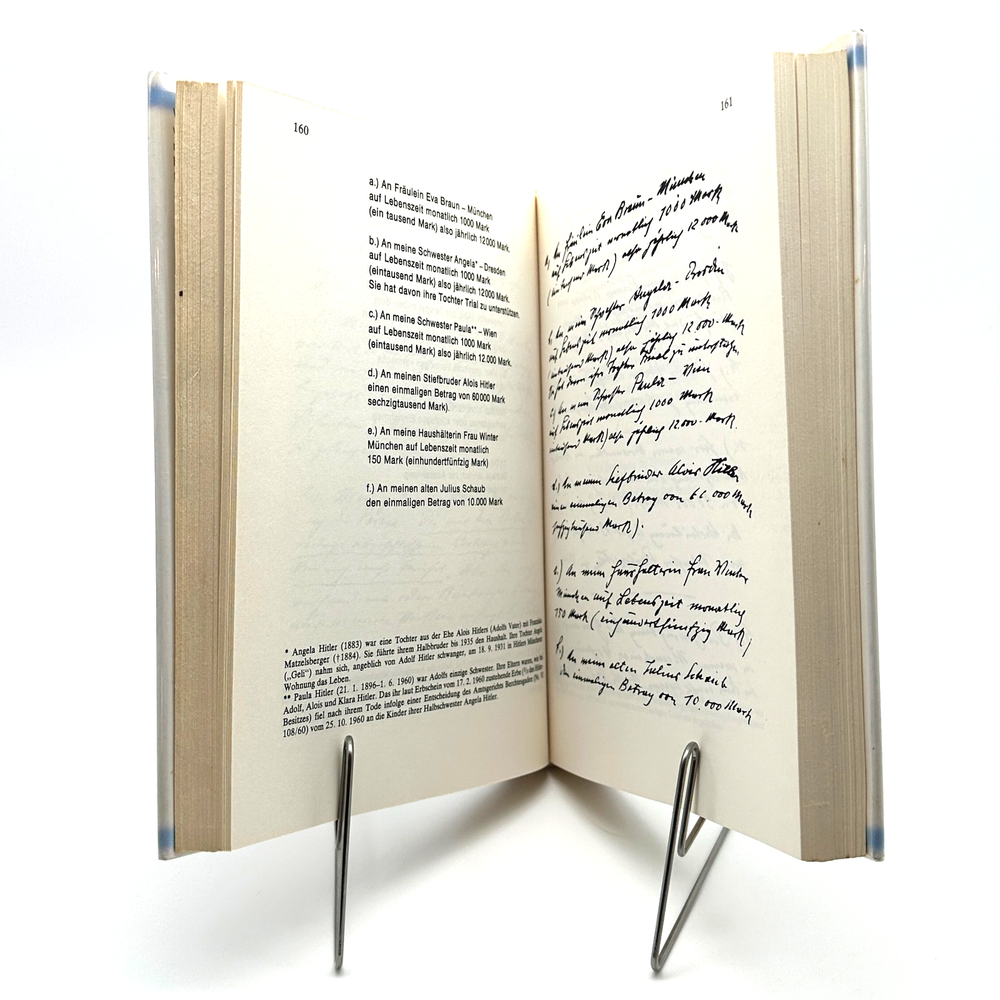 160
a.) An Fräulein Eva Braun – München
auf Lebenszeit monatlich 1000 Mark
(ein tausend Mark) also jährlich 12000 Mark.
b.) An meine Schwester Angela* – Dresden
auf Lebenszeit monatlich 1000 Mark
(eintausend Mark) also jährlich 12000 Mark.
Sie hat davon ihre Tochter Trial zu unterstützen.
c.) An meine Schwester Paula** – Wien
auf Lebenszeit monatlich 1000 Mark
(eintausend Mark) also jährlich 12.000 Mark.
d.) An meinen Stiefbruder Alois Hitler
einen einmaligen Betrag von 60000 Mark
sechzigtausend Mark).
e.) An meine Haushälterin Frau Winter
München auf Lebenszeit monatlich
150 Mark (einhundertfünfzig Mark)
f.) An meinen alten Julius Schaub
den einmaligen Betrag von 10.000 Mark
* Angela Hitler (1883) war eine Tochter aus der Ehe Alois Hitlers (Adolfs Vater) mit Franziska
Matzelsberger (†1884). Sie führte ihrem Halbbruder bis 1935 den Haushalt. Ihre Tochter Angela
(„Geli") nahm sich, angeblich von Adolf Hitler schwanger, am 18. 9. 1931 in Hitlers Münchener
Wohnung das Leben.
** Paula Hitler (21. 1. 1896–1. 6. 1960) war Adolfs einzige Schwester. Ihre Eltern waren, wie
Adolf, Alois und Klara Hitler. Das ihr laut Erbschein vom 17. 2. 1960 zustehende Erbe des Hitler-
Besitzes) fiel nach ihrem Tode infolge einer Entscheidung des Amtsgerichts Berchtesgaden (Nr. VI
108/60) vom 25. 10. 1960 an die Kinder ihrer Halbschwester Angela Hitler.
161
a, An Fräulein Eva Braun – München
auf Lebenszeit monatlich 1000 Mark
(ein tausend Mark) also jährlich 12000 Mark
b. An meine Schwester Angela – Dresden
auf Lebenszeit monatlich 1000 Mark
(eintausend Mark) also jährlich 12000. Mark
Sie hat davon ihre Tochter Trial zu unterstützen.
c) An meine Schwester Paula – Wien
auf Lebenszeit monatlich 1000 Mark
(eintausend Mark) also jährlich 12000. Mark.
d.) An meinen Stiefbruder Alois Hitler
einen einmaligen Betrag von 60.000 Mark
sechzigtausend Mark).
e.) An meine Haushälterin Frau Winter
München auf Lebenszeit monatlich
150 Mark (einhundertfünfzig Mark)
f.) An meinen alten Julius Schaub
den einmaligen Betrag von 10.000 Mark